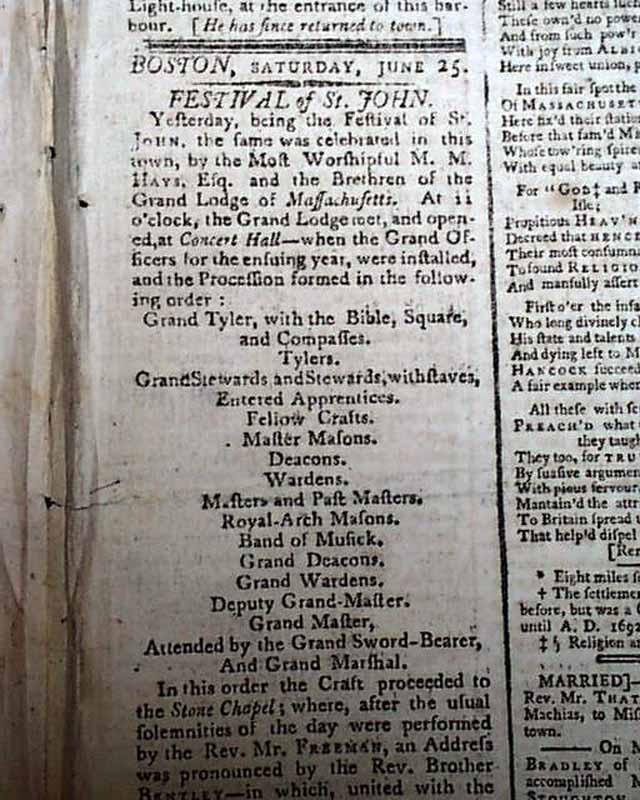 Light-house, at the entrance of this har-
bour. [He has ſince returned to town.]
BOSTON, SATURDAY, JUNE 25.
FESTIVAL of St. JOHN.
Yeſterday, being the Feſtival of St.
JOHN, the ſame was celebrated in this
town, by the Moſt Worſhipful M. M.
HAYS, Eſq. and the Brethren of the
Grand Lodge of Maſſachuſetts. At 11
o'clock, the Grand Lodge met, and open-
ed, at Concert Hall—when the Grand Of-
ficers for the enſuing year, were inſtalled,
and the Proceſſion formed in the follow-
ing order :
Grand Tyler, with the Bible, Square,
and Compaſſes.
Tylers.
Grand Stewards and Stewards, with ſtaves,
Entered Apprentices.
Fellow Crafts.
Maſter Maſons.
Deacons.
Wardens.
Maſters and Paſt Maſters.
Royal-Arch Maſons.
Band of Muſick.
Grand Deacons.
Grand Wardens.
Deputy Grand-Maſter.
Grand Maſter,
Attended by the Grand Sword-Bearer,
And Grand Marſhal.
In this order the Craft proceeded to
the Stone Chapel; where, after the uſual
ſolemnities of the day were performed
by the Rev. Mr. FREEMAN, an Addreſs
was pronounced by the Rev. Brother
BENTLEY—in which, united with the
Still a few hearts
Theſe own'd no power
And from ſuch pow'r
With joy from
Here in ſweet union,
In this fair ſpot the
Of
Here fix'd their
Before that fam'd
Whoſe tow'ring
With equal beauty
For "GOD‡ and
Iſle;
Propitious HEAV'N
Decreed that HENCE
Their moſt
To found
And manfully aſſert
Firſt o'er the
Who long divinely
His ſtate and talents
And dying left to
HANCOCK
A fair example
All theſe with
PREACH'D what
they taught
They too, for
By ſuaſive
With pious
Mantain'd the
To Britain ſpread
That help'd diſpel
* Eight miles
† The
before, but was a
until A. D. 1692
‡ § Religion
MARRIED]—
Rev. Mr.
Machias, to
town.
On
BRADLEY of
accompliſhed